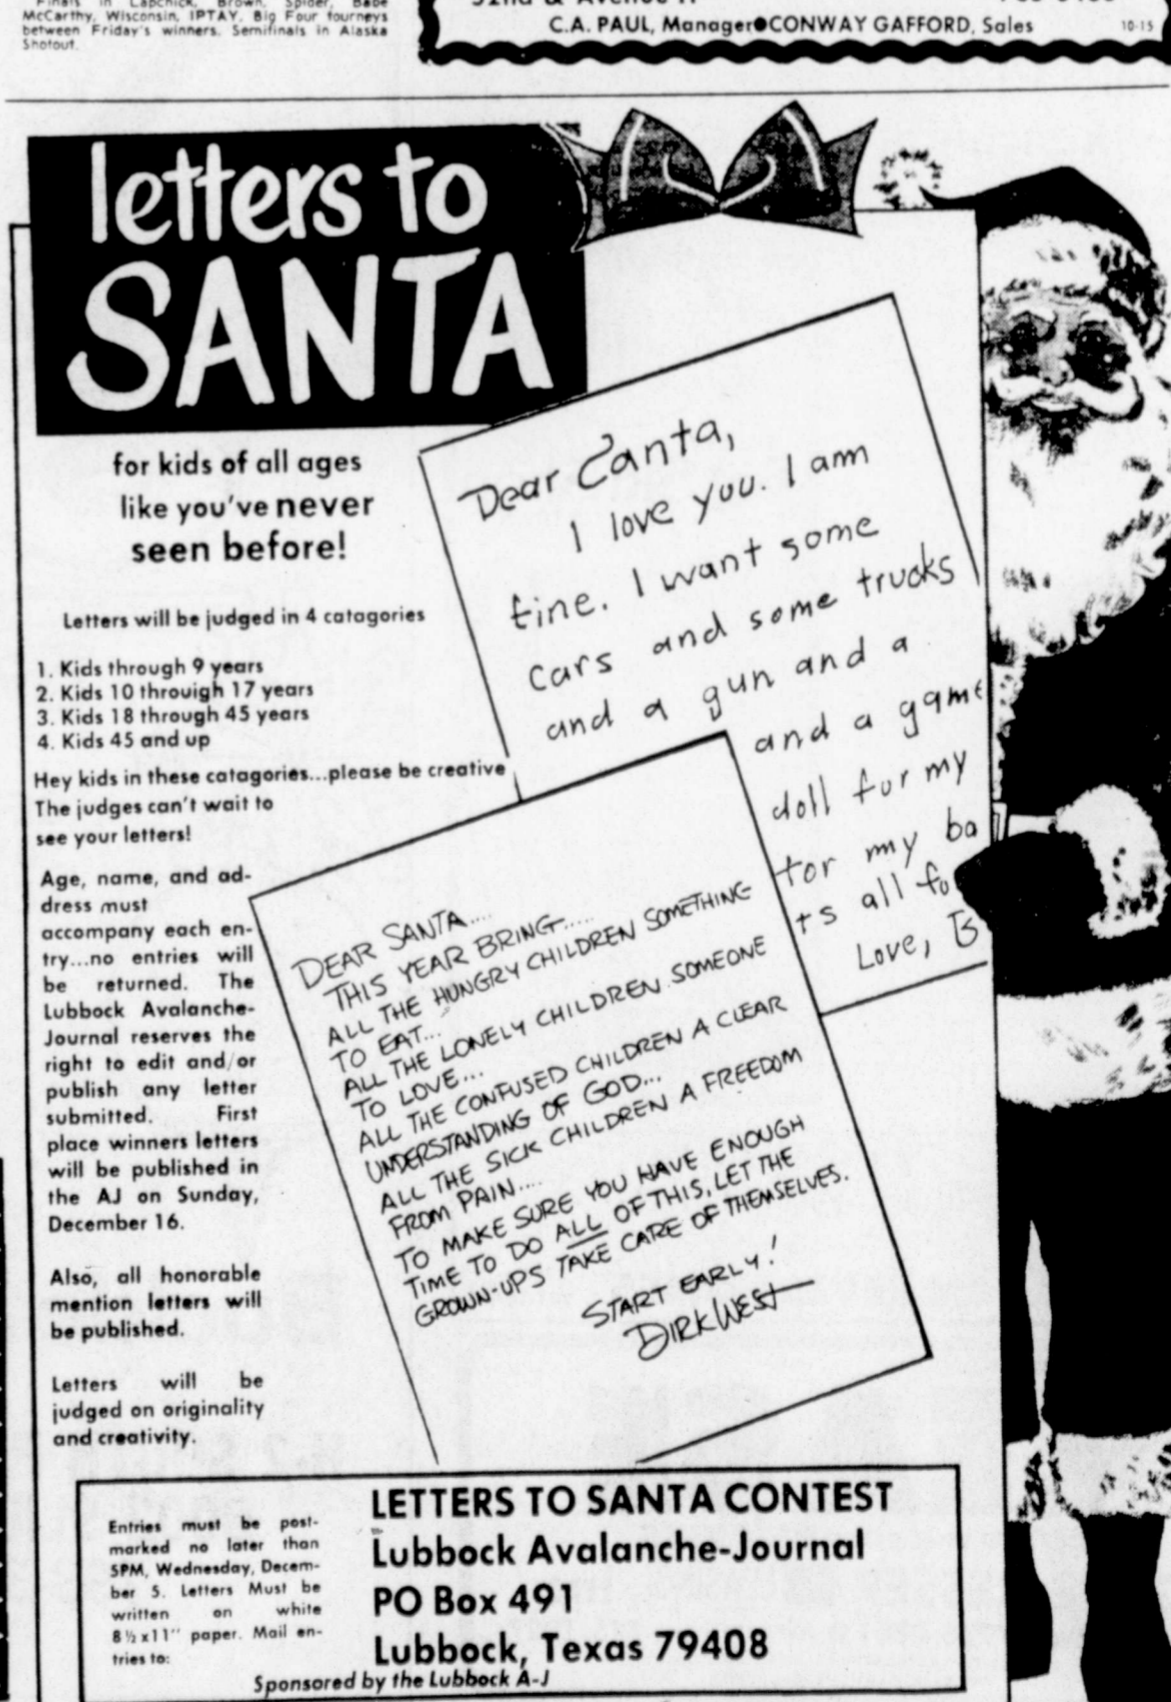 Finals in Lapchick, Brown, Spider, Babe
McCarthy, Wisconsin, IPTAY, Big Four tourneys
between Friday's winners. Semifinals in Alaska
Shotout.
C.A. PAUL, Manager●CONWAY GAFFORD, Sales
10-15
letters to
SANTA
for kids of all ages
like you've never
seen before!
Letters will be judged in 4 catagories
1. Kids through 9 years
2. Kids 10 throuigh 17 years
3. Kids 18 through 45 years
4. Kids 45 and up
Hey kids in these catagories...please be creative
The judges can't wait to
see your letters!
Age, name, and ad-
dress must
accompany each en-
try...no entries will
be returned. The
Lubbock Avalanche-
Journal reserves the
right to edit and/or
publish any letter
submitted. First
place winners letters
will be published in
the AJ on Sunday,
December 16.
Also, all honorable
mention letters will
be published.
Letters will be
judged on originality
and creativity.
Dear Canta,
I love you. I am
fine. I want some
cars and some trucks
and a gun and a
and a game
doll for my
for my ba
ts all fo
Love, B
DEAR SANTA....
THIS YEAR BRING.....
ALL THE HUNGRY CHILDREN SOMETHING
TO EAT...
ALL THE LONELY CHILDREN SOMEONE
TO LOVE...
ALL THE CONFUSED CHILDREN A CLEAR
UNDERSTANDING OF GOD...
ALL THE SICK CHILDREN A FREEDOM
FROM PAIN....
TO MAKE SURE YOU HAVE ENOUGH
TIME TO DO ALL OF THIS, LET THE
GROWN-UPS TAKE CARE OF THEMSELVES.
START EARLY!
DIRK WEST
Entries must be post-
marked no later than
5PM, Wednesday, Decem-
ber 5. Letters Must be
written on white
8½x11" paper. Mail en-
tries to:
LETTERS TO SANTA CONTEST
Lubbock Avalanche-Journal
PO Box 491
Lubbock, Texas 79408
Sponsored by the Lubbock A-J